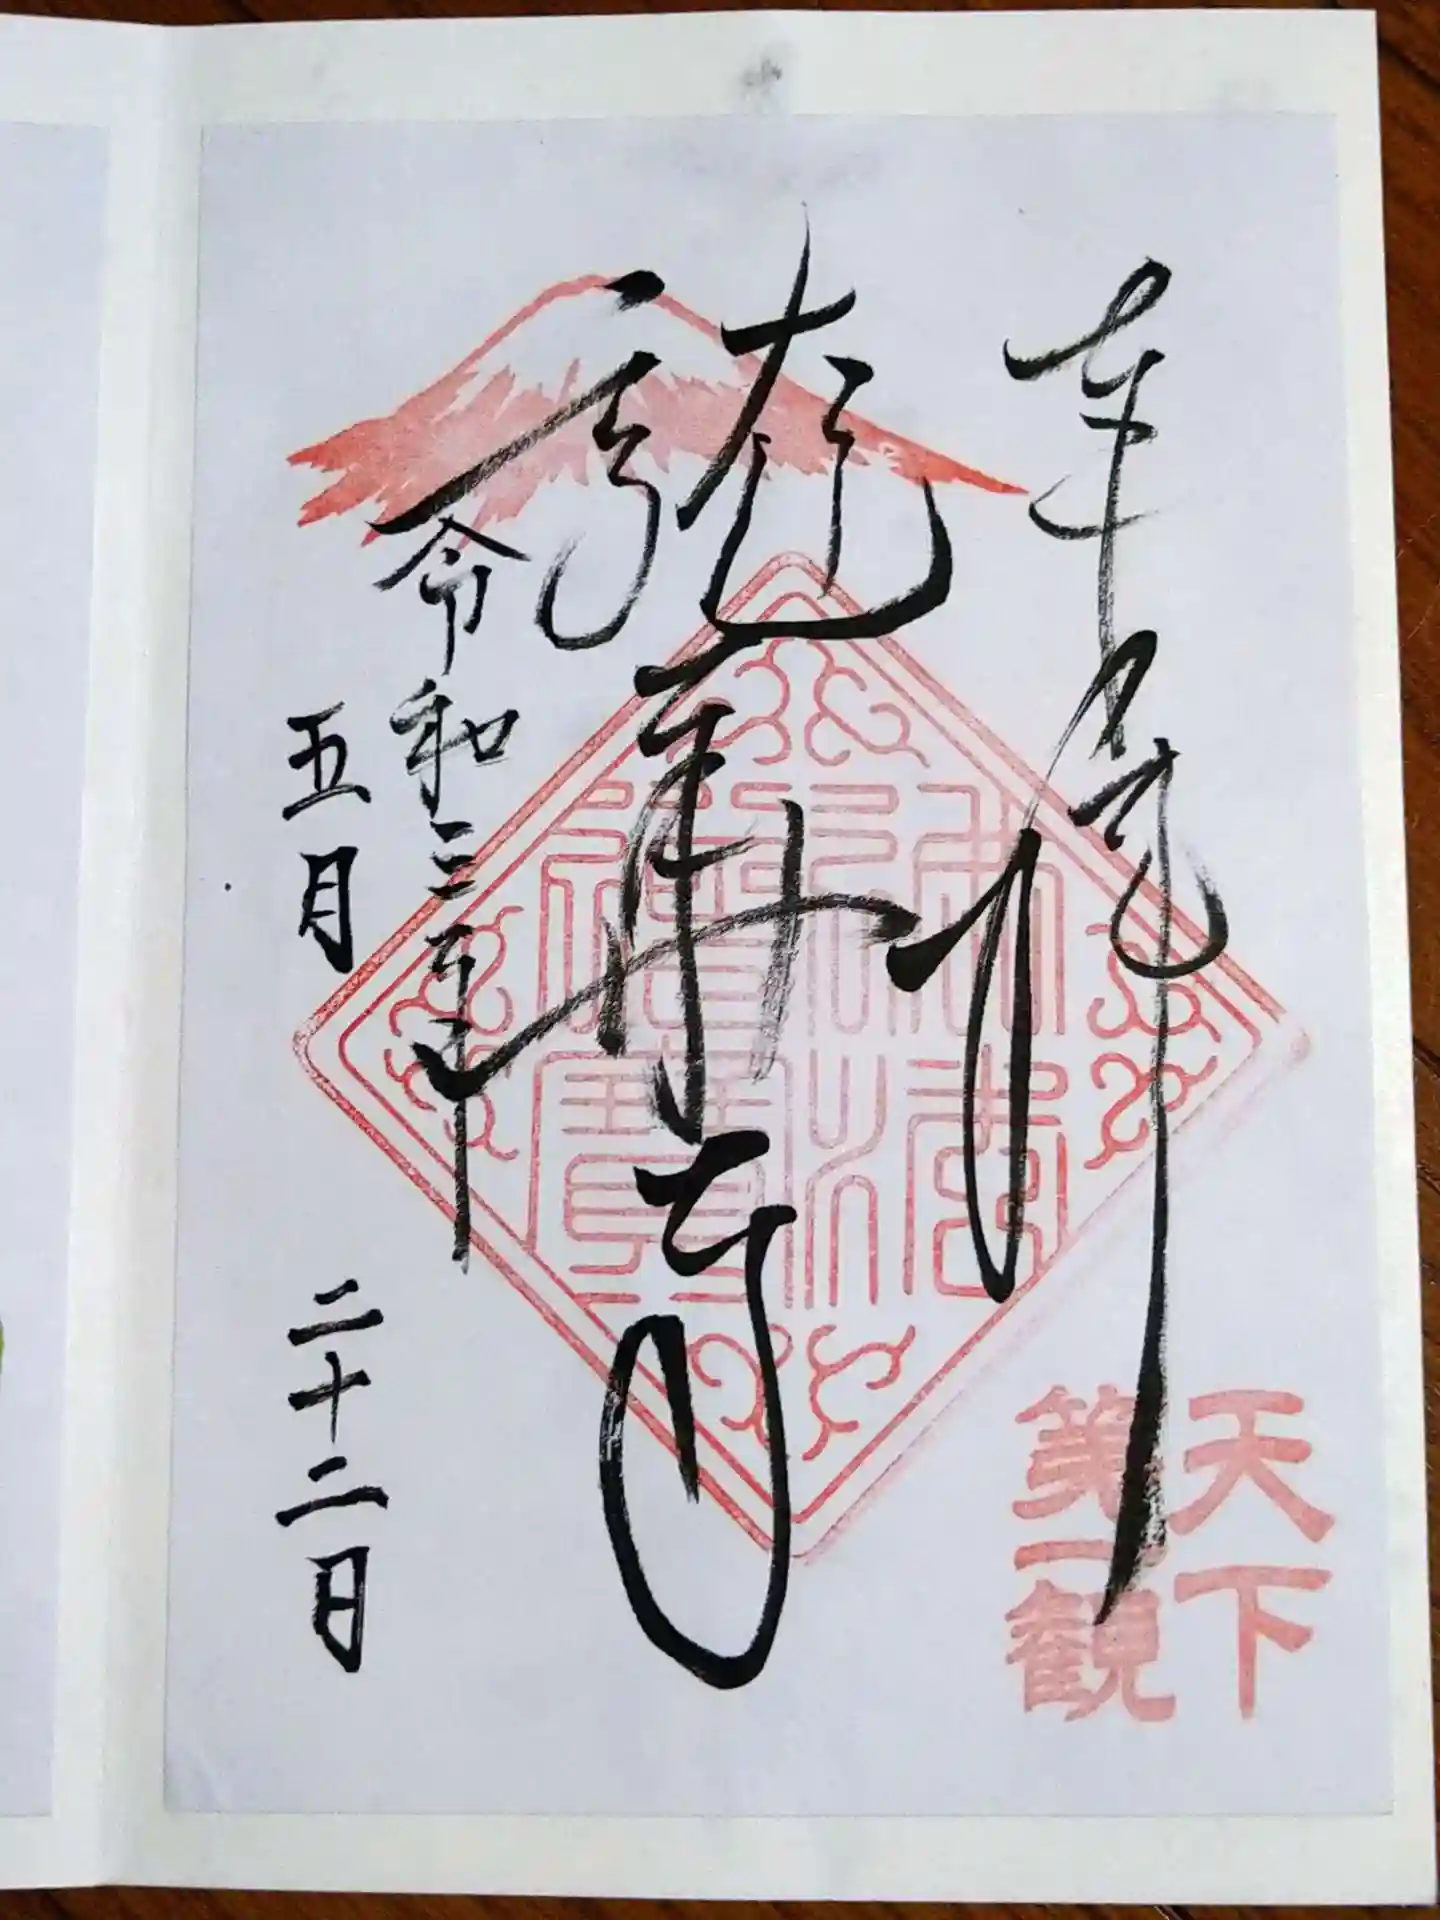 龍華寺
令和三年
五月二十二日
佛法
僧寶
天下
第一観